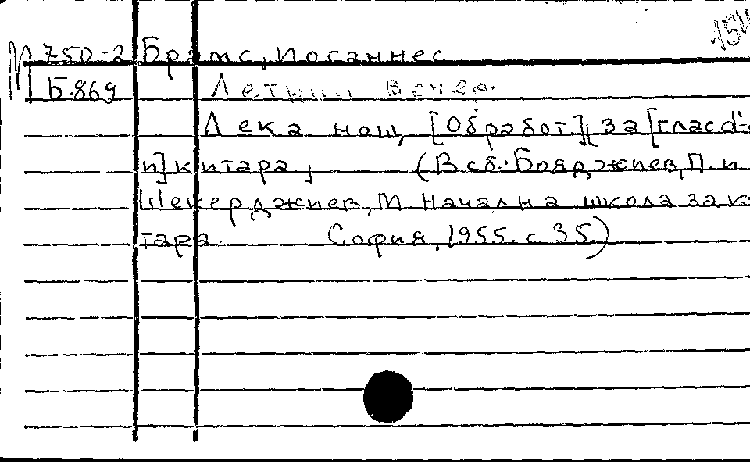 М 750-2 Брамс, Йоганнес
Б.869 Летний вечер.
Лека нощ, [Обработ.] за [глас
и] китара, (В сб.: Бояджиев, П. и
Шекерджиев, М. Начална школа за ки
тара. София, 1955. с. 35)